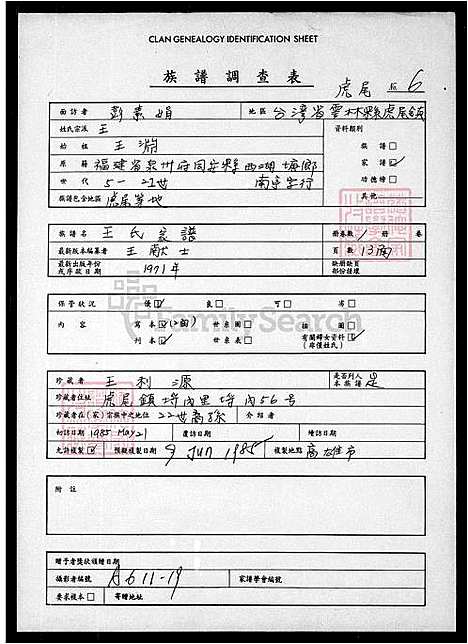 CLAN GENEALOGY IDENTIFICATION SHEET
族譜調查表
虎尾 6
面訪者 彭素娟 地區 台灣省雲林縣虎尾鎮
姓氏宗派 王 資料類別
始祖 王 族譜 □
原籍 福建省泉州府同安縣 家譜 ☑
世代 5 - 22世 功德榜 □
族譜包含地區 虎尾等地 其他
族譜名 王氏家譜 冊卷數 1 冊 卷
最新版本編纂者 王獻士 頁數 13
最新出版年份或序跋日期 1971年 缺冊缺頁部份註葉
保管狀況 優 ☑ 良 □ 可 □ 劣 □
內容 寫本 ☑ 世系圖 □ 插圖 □
刊本 □ 世系表 □ 有關婦女資料(庶僅姓氏)
FamilySearch
珍藏者 王利源 是否列入本族譜 是
珍藏者住址 虎尾鎮埒內里埒內56号
珍藏者在(家)宗族中之地位 22世裔孫 介紹者
初訪日期 1985 May 21 復訪日期 續訪日期
允許複製 ☑ 預擬複製日期 9 Jun 1985 複製地點 高雄市
附註
贈予者獎狀頒贈日期
攝影者編號 A611-19 家譜學會編號
要求複本 □ 寄贈地址